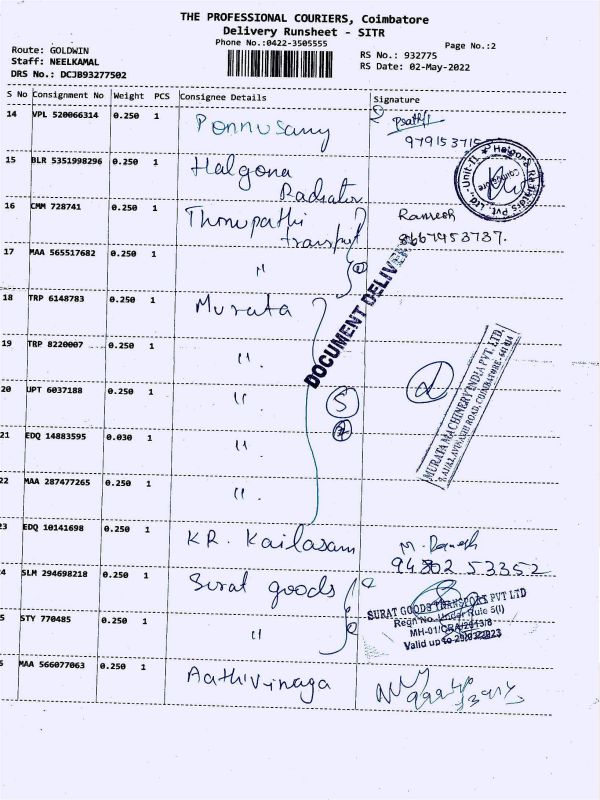 THE PROFESSIONAL COURIERS, Coimbatore
Delivery Runsheet - SITR
Phone No.:0422-3505555
Page No.:2
Route: GOLDWIN
Staff: NEELKAMAL
DRS No.: DCJB93277502
RS No.: 932775
RS Date: 02-May-2022
S No Consignment No Weight PCS Consignee Details Signature
14 VPL 520066314 0.250 1 Ponnusamy
15 BLR 5351998296 0.250 1 Halgona Radiator
16 CMM 728741 0.250 1 Thirupathi transport Ramesh
17 MAA 565517682 0.250 1 "
DOCUMENT DELIVER
18 TRP 6148783 0.250 1 Murata
19 TRP 8220007 0.250 1 "
20 UPT 6037188 0.250 1 " 5
21 EDQ 14883595 0.030 1 "
22 MAA 287477265 0.250 1 "
MURATA MACHINERY INDIA PVT. LTD.
AVINASHI ROAD, COIMBATORE
23 EDQ 10141698 0.250 1 KR. Kailasam M. Ramesh
53352
4 SLM 294698218 0.250 1 Surat goods
SURAT GOODS TRANSPORT PVT LTD
Regn No. Under Rule 5(I)
MH-01/CBA/2013/8
Valid up to 29/03/2023
5 STY 770485 0.250 1 "
MAA 566077063 0.250 1 Aathivinaga